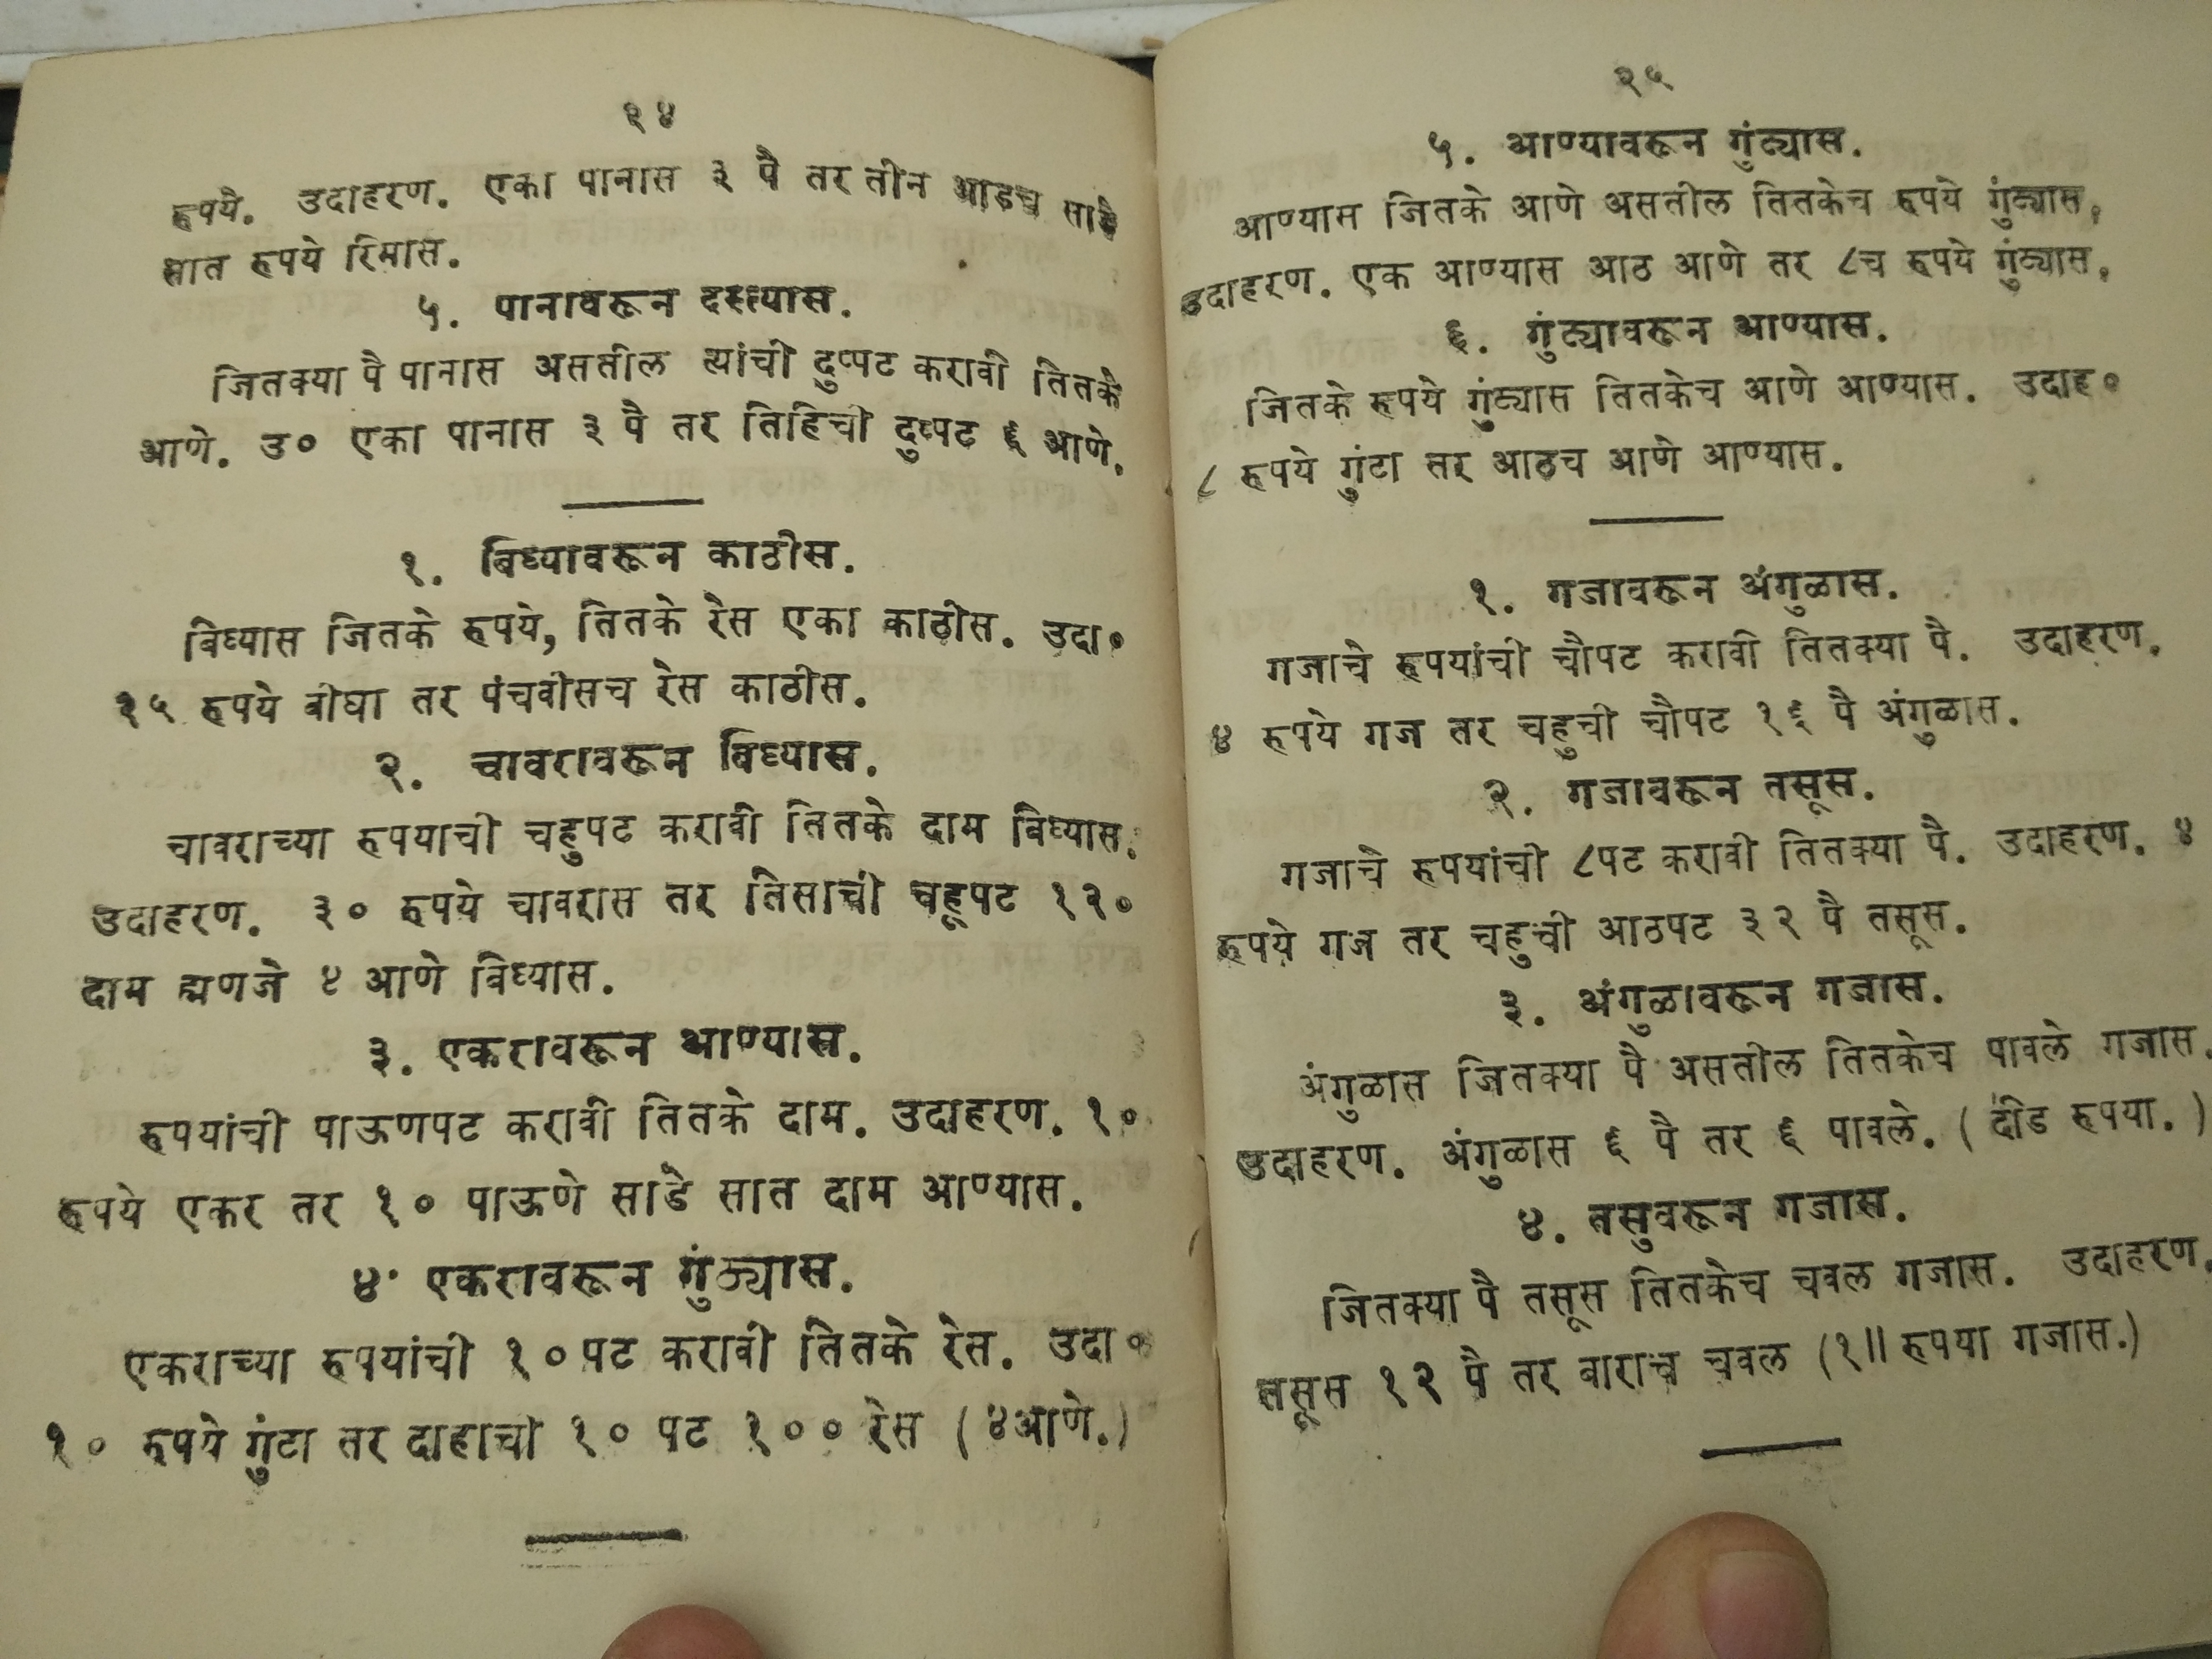 २४
रुपये. उदाहरण. एका पानास ३ पै तर तीन आडच साडे
सात रुपये रिमास.
५. पानावरून दस्त्यास.
जितक्या पै पानास असतील त्यांची दुप्पट करावी तितके
आणे. उ० एका पानास ३ पै तर तिहिची दुप्पट ६ आणे.
१. बिघ्यावरून काठीस.
बिघ्यास जितके रुपये, तितके रेस एका काठीस. उदा०
२५ रुपये बीघा तर पंचवीसच रेस काठीस.
२. चावरावरून बिघ्यास.
चावराच्या रुपयाची चहुपट करावी तितके दाम बिघ्यास.
उदाहरण. ३० रुपये चावरास तर तिसाची चहूपट १२०
दाम ह्मणजे ४ आणे बिघ्यास.
३. एकरावरून आण्यास.
रुपयांची पाऊणपट करावी तितके दाम. उदाहरण. १०
रुपये एकर तर १० पाऊणे साडे सात दाम आण्यास.
४. एकरावरून गुंठ्यास.
एकराच्या रुपयांची १०पट करावी तितके रेस. उदा०
१० रुपये गुंटा तर दाहाची १० पट १०० रेस (४आणे.)
२५
५. आण्यावरून गुंठ्यास.
आण्यास जितके आणे असतील तितकेच रुपये गुंठ्यास,
उदाहरण. एक आण्यास आठ आणे तर ८च रुपये गुंठ्यास,
६. गुंठ्यावरून आण्यास.
जितके रुपये गुंठ्यास तितकेच आणे आण्यास. उदाह०
८ रुपये गुंटा तर आठच आणे आण्यास.
१. गजावरून अंगुळास.
गजाचे रुपयांची चौपट करावी तितक्या पै. उदाहरण.
४ रुपये गज तर चहुची चौपट १६ पै अंगुळास.
२. गजावरून तसूस.
गजाचे रुपयांची ८पट करावी तितक्या पै. उदाहरण. ४
रुपये गज तर चहुची आठपट ३२ पै तसूस.
३. अंगुळावरून गजास.
अंगुळास जितक्या पै असतील तितकेच पावले गजास.
उदाहरण. अंगुळास ६ पै तर ६ पावले. (दीड रुपया.)
४. तसुवरून गजास.
जितक्या पै तसूस तितकेच चवल गजास. उदाहरण.
तसूस १२ पै तर बाराच चवल (१॥ रुपया गजास.)